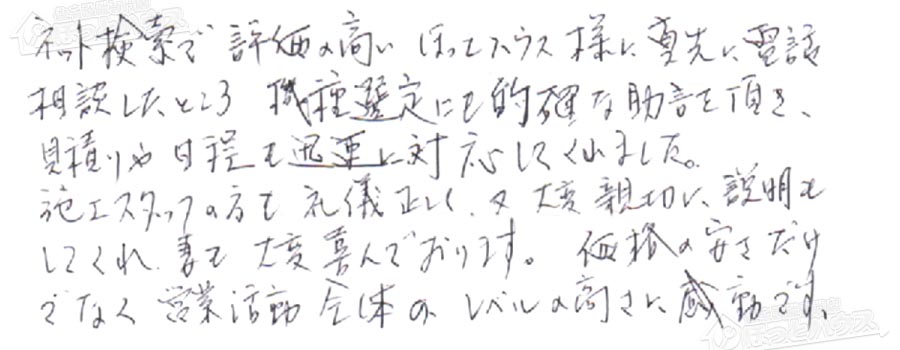 ネット検索で評価の高いほっとハウス様に真先に電話
相談したところ 機種選定にも的確な助言を頂き、
見積りや日程も迅速に対応してくれました。
施工スタッフの方も礼儀正しく、又大変親切に説明も
してくれ、妻も大変喜んでおります。価格の安さだけ
でなく営業活動全体のレベルの高さに感動です。
ほっとハウス